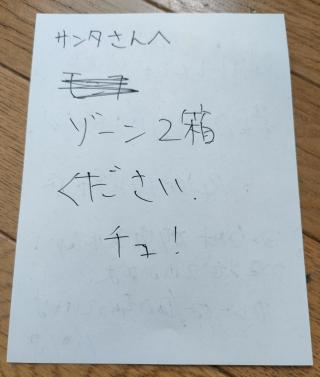 サンタさんへ
ゾーン2箱
ください.
チュ!